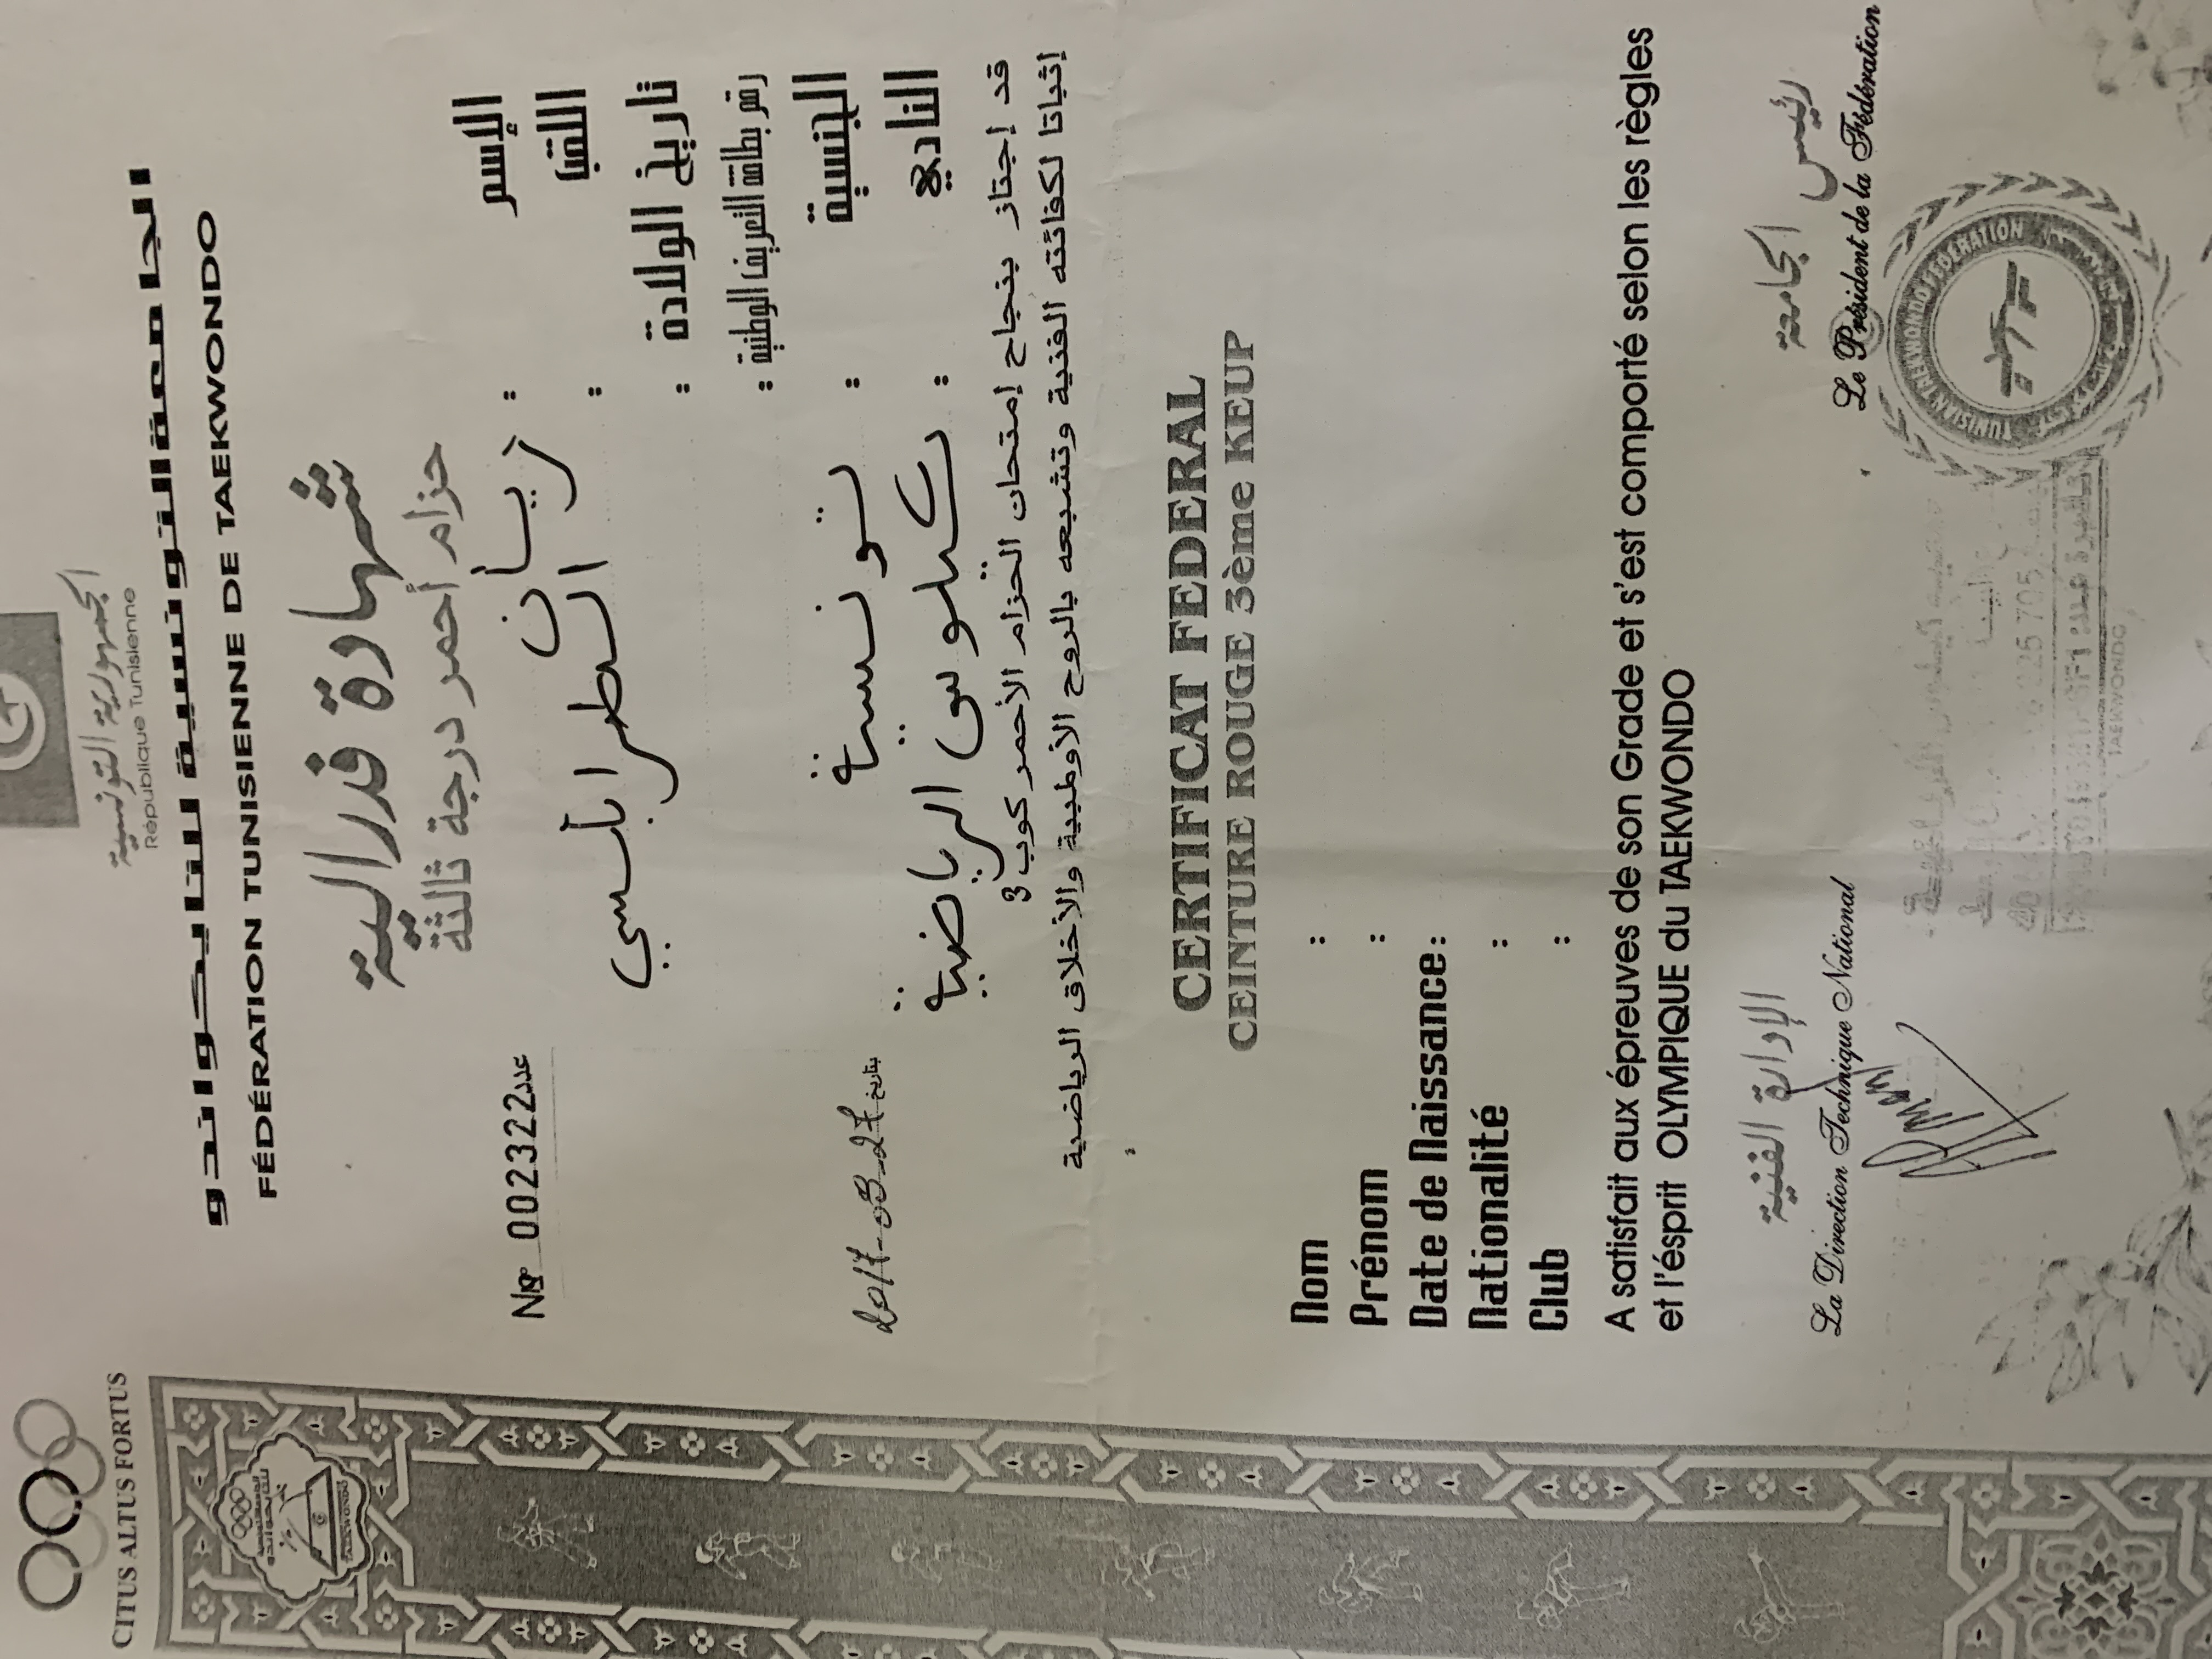 CITUS ALTUS FORTUS
الجمهورية التونسية
République Tunisienne
الجامعة التونسية للتايكواندو
FÉDÉRATION TUNISIENNE DE TAEKWONDO
شهادة فدرالية
حزام أحمر درجة ثالثة
№ 002322 عدد
الإسم : ريان
اللقب : الطرابلسي
تاريخ الولادة :
رقم بطاقة التعريف الوطنية :
الجنسية : تونسية
النادي : قيلوس الرياضية
2017-03-27 بتاريخ
قد إجتاز بنجاح إمتحان الحزام الأحمر كوب 3
إثباتا لكفائته الفنية وتشبعه بالروح الأولمبية والأخلاق الرياضية
CERTIFICAT FEDERAL
CEINTURE ROUGE 3ème KEUP
Nom :
Prénom :
Date de Naissance :
Nationalité :
Club :
A satisfait aux épreuves de son Grade et s'est comporté selon les règles
et l'ésprit OLYMPIQUE du TAEKWONDO
الإدارة الفنية
La Direction Technique National
رئيس الجامعة
Le Président de la Fédération
TUNISIAN TAEKWONDO FEDERATION
TAEKWONDO